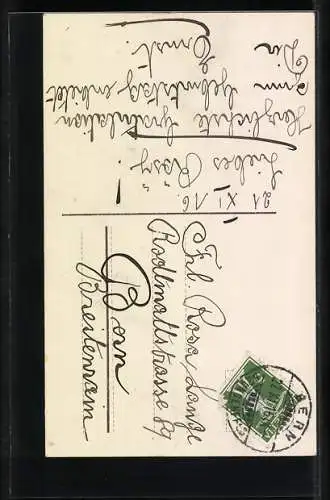 21 XI 16.
Liebes Rösy!
Herzlichste Gratulation
zum Geburtstag entbietet
Dir
Ernst.
Frl. Rosa Lange
Rodtmattstrasse 89
Bern
Breitenrain
BERN